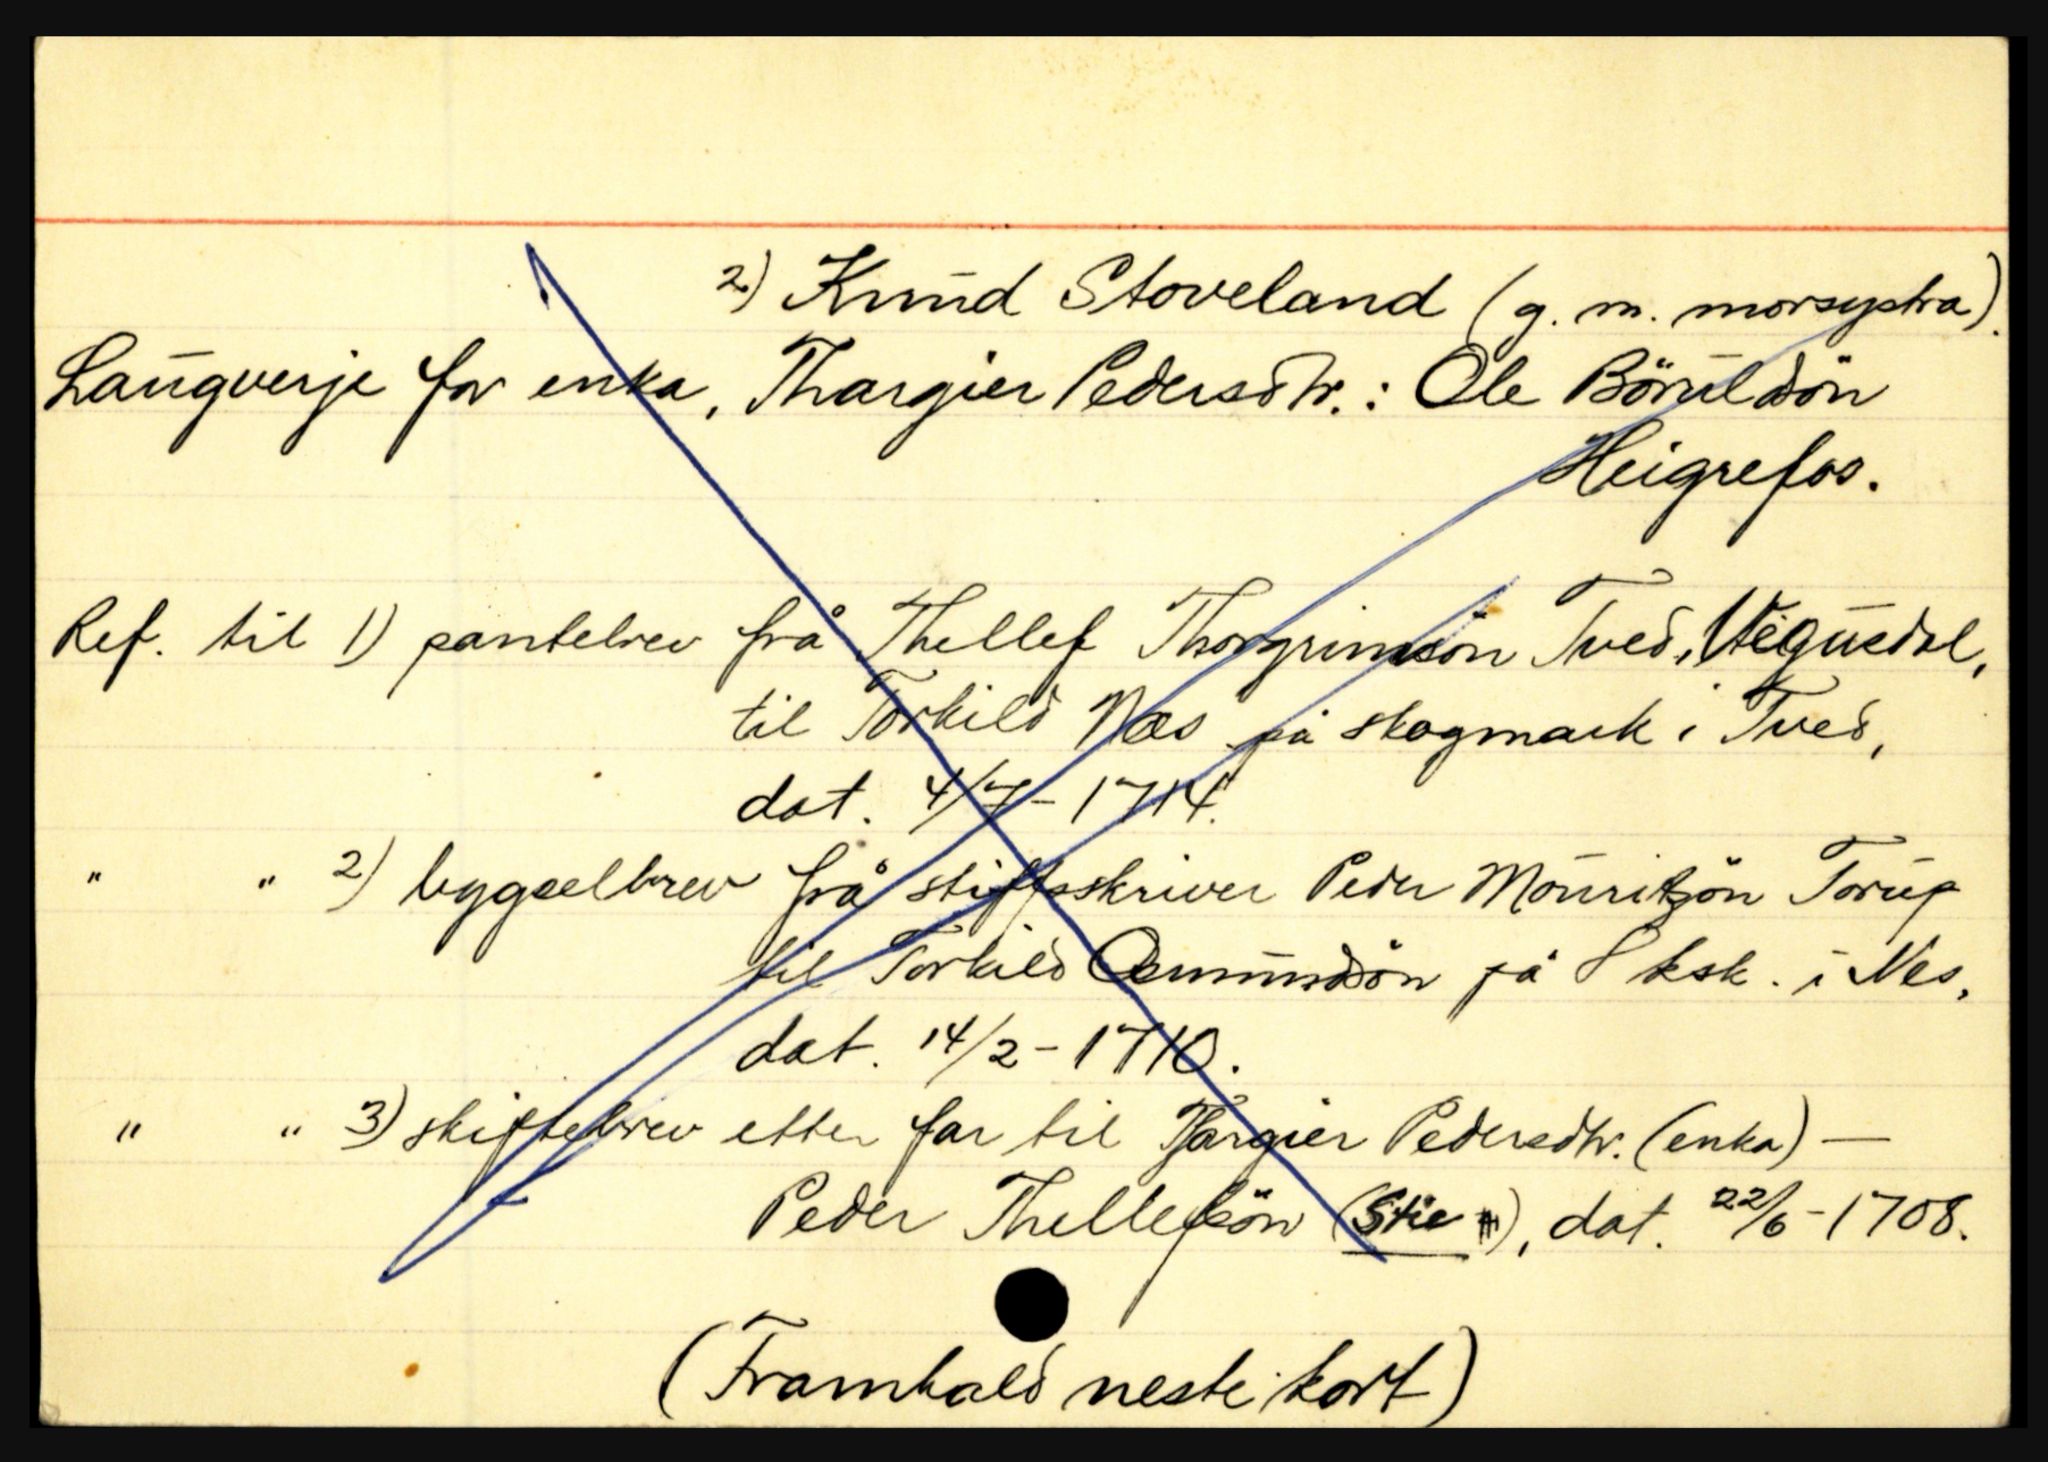 2) Knud Stoveland (g. m. morsystra).
Laugverje for enka, Thargier Pedersdtr.: Ole Böruldsön
Heigrefos.
Ref. til 1) pantebrev frå Thellef Thorgrimsön Tved, Vegusdal,
til Torkild Næs på skogmark i Tved,
dat. 4/7 - 1714.
" " 2) bygselbrev frå stiftsskriver Peder Mouritzön Torup
til Torkild Osmundsön på 8 ksk. i Nes,
dat. 14/2 - 1710.
" " 3) skiftebrev etter far til Targier Pedersdtr. (enka) —
Peder Thellefsön (Stie), dat. 22/6 - 1708.
(Framhald neste kort)